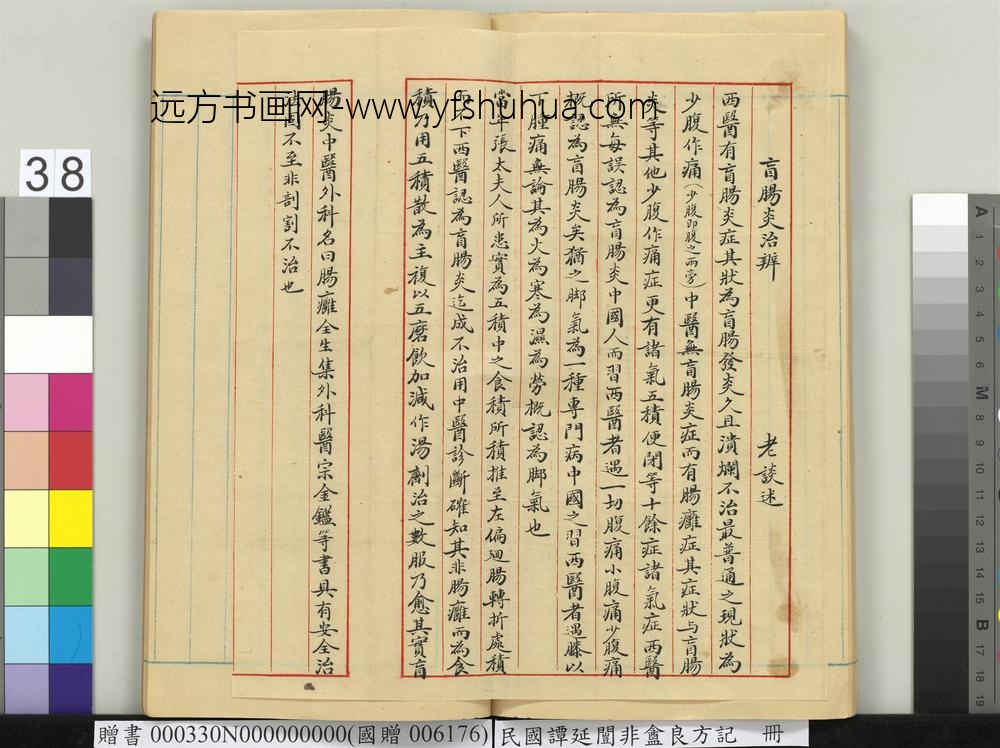 盲腸炎治辨 老談述
西醫有盲腸炎症其狀為盲腸發炎久且潰爛不治最普通之現狀為
少腹作痛(少腹即腹之兩旁)中醫無盲腸炎症而有腸癰症其症狀与盲腸
炎等其他少腹作痛症更有諸氣五積便閉等十餘症諸氣症西醫
所無每誤認為盲腸炎中國人而習西醫者遇一切腹痛小腹痛少腹痛
概認為盲腸炎矣猶之脚氣為一種專門病中國之習西醫者遇膝以
下腫痛無論其為火為寒為濕為勞概認為脚氣也
當年張太夫人所患實為五積中之食積所積推至左偏廻腸轉折處積
而不下西醫認為盲腸炎迄成不治用中醫診斷確知其非腸癰而為食
積乃用五積散為主複以五磨飲加減作湯劑治之數服乃愈其實盲
腸炎中醫外科名曰腸癰全生集外科醫宗金鑑等書具有安全治
法固不至非剖割不治也
远方书画网-www.yfshuhua.com
38
A 1 2 3 4 5 6 M 8 9 10 11 12 13 14 15 B 17 18 19
贈書 000330N000000000(國贈 006176) 民國譚延闓非盫良方記 冊